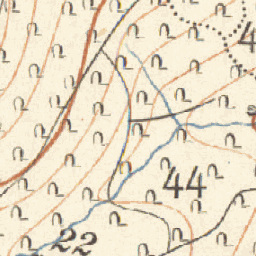 4
44
22